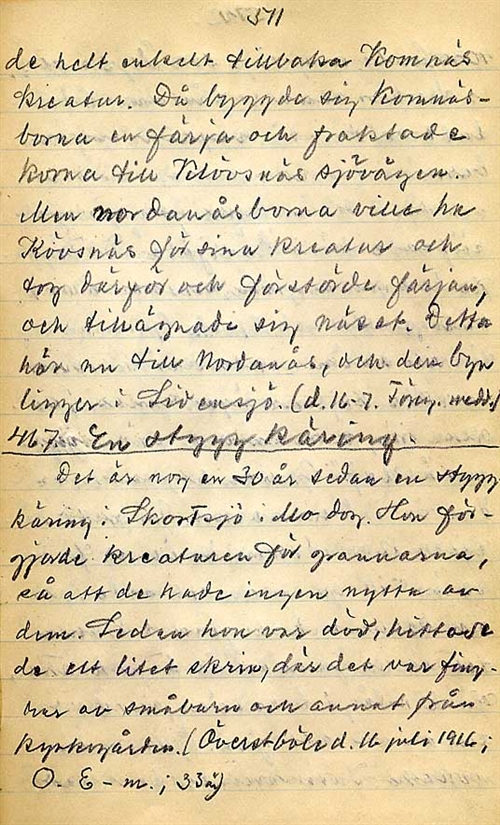 511
de helt enkelt tillbaka Komnäs
kreatur. Då byggde sig Komnäs-
borna en färja och fraktade
korna till Klövsnäs sjövägen.
Men nordanåsborna ville ha
Kövsnäs för sina kreatur och
tog därför och förstörde färjan,
och tillägnade sig näset. Detta
hör nu till Nordanås, och den byn
ligger i Lidensjö. (d. 16-7. Föreg. medd.)
467. En stygg käring.
Det är nog en 30 år sedan en stygg
käring i Skortsjö. Mo dog. Hon för-
gjorde kreaturen för grannarna,
så att de hade ingen nytta av
dem. Sedan hon var död, hittade
de ett litet skrin, där det var fing-
rar av småbarn och annat från
kyrkogården. (Överstböle d. 16 juli 1916;
O- E- m.; 33 år)